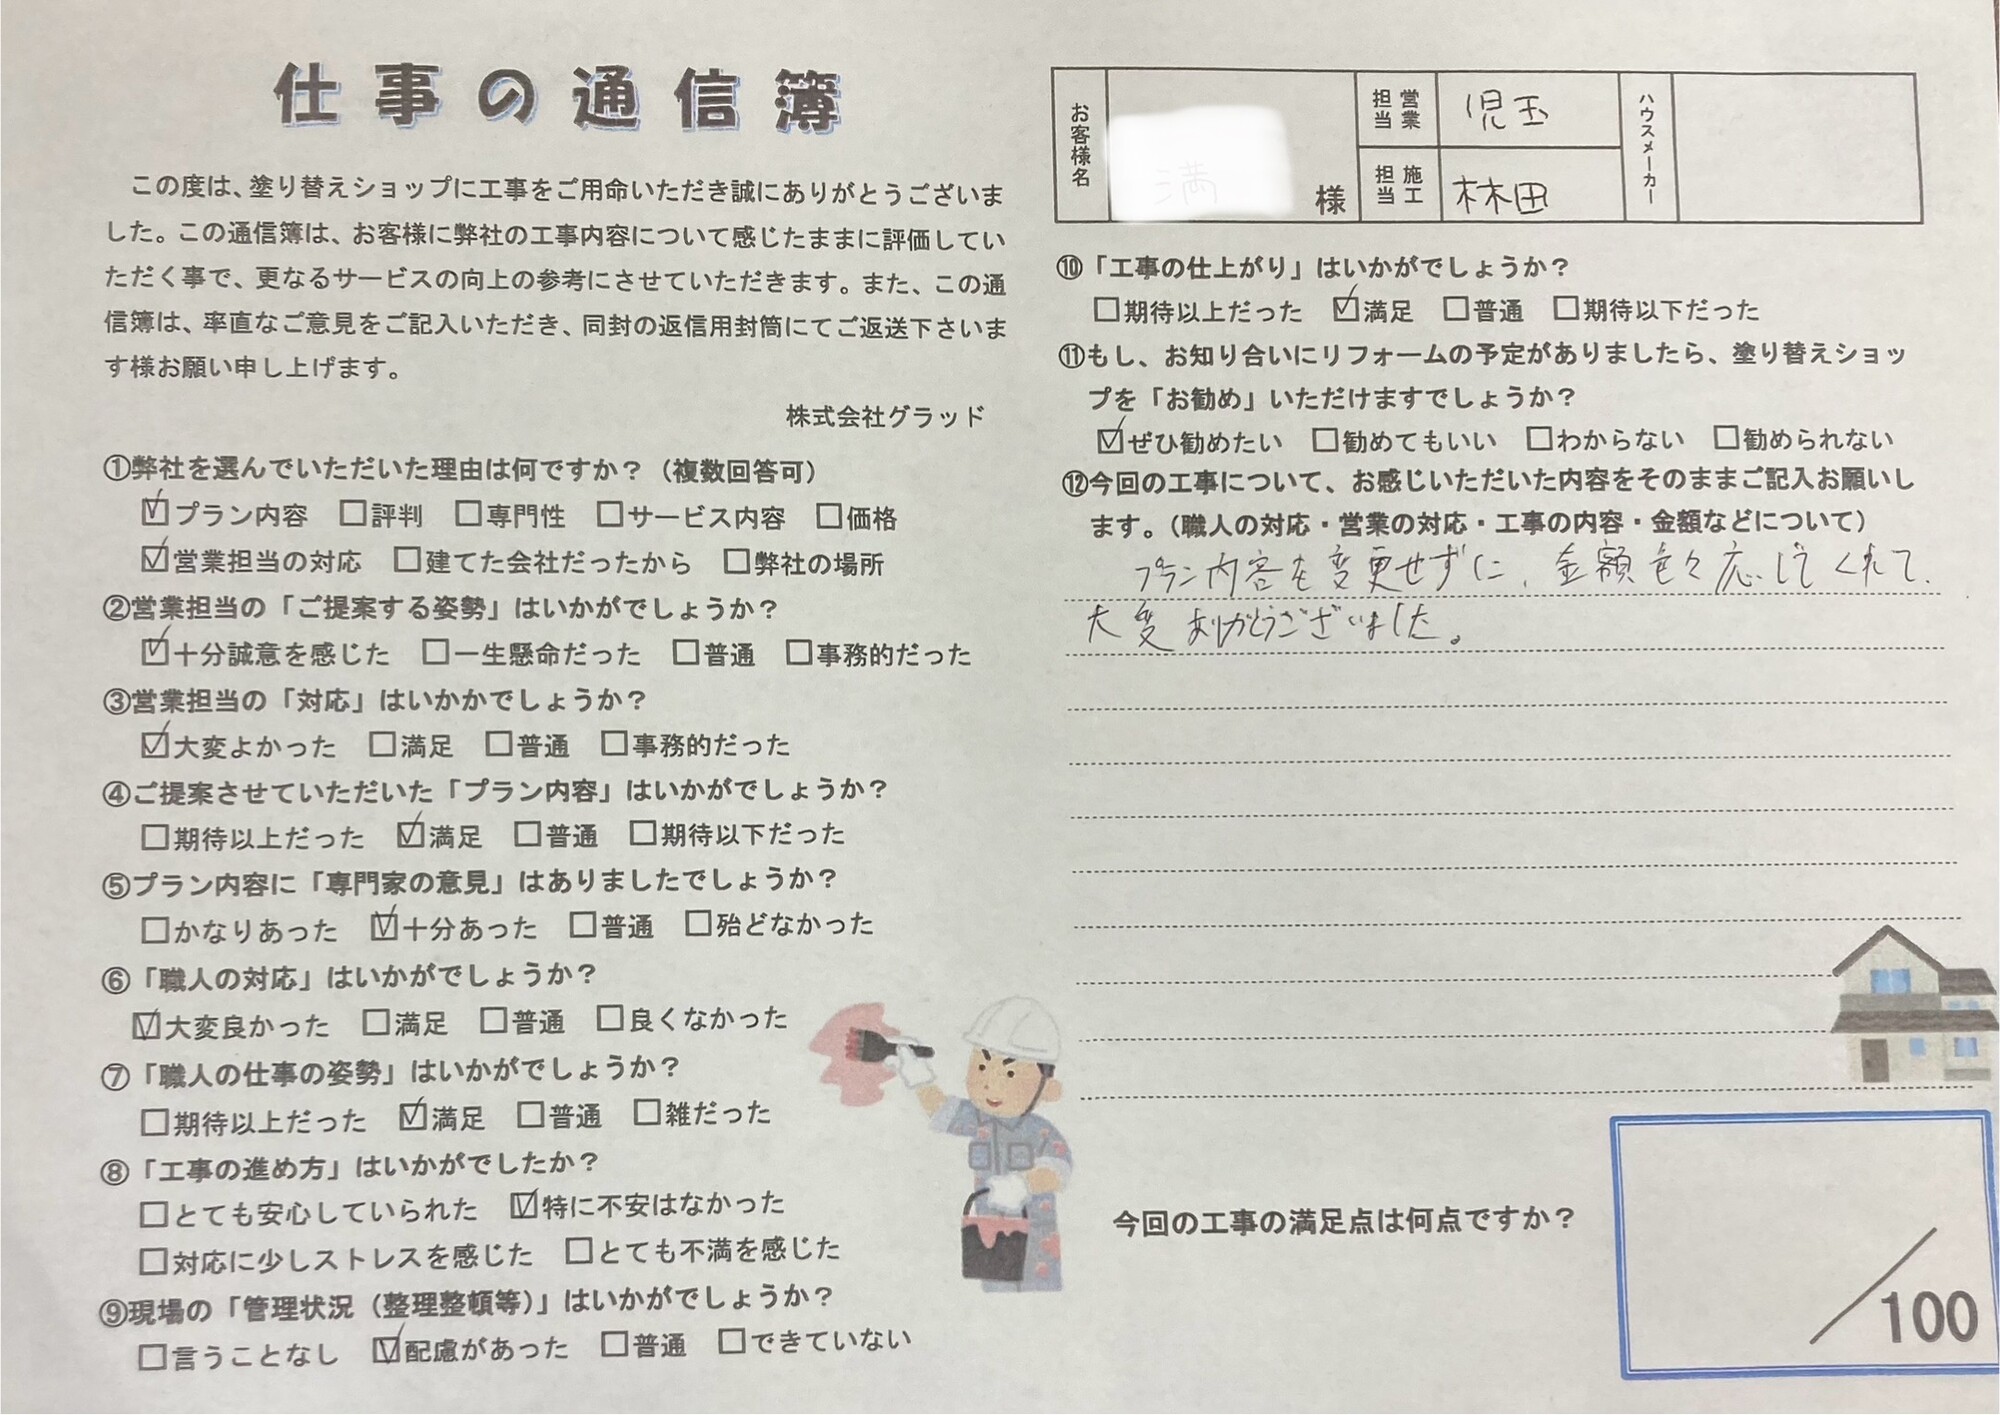 仕事の通信簿
この度は、塗り替えショップに工事をご用命いただき誠にありがとうございま
した。この通信簿は、お客様に弊社の工事内容について感じたままに評価してい
ただく事で、更なるサービスの向上の参考にさせていただきます。また、この通
信簿は、率直なご意見をご記入いただき、同封の返信用封筒にてご返送下さいま
す様お願い申し上げます。
株式会社グラッド
①弊社を選んでいただいた理由は何ですか？（複数回答可）
☑プラン内容 □評判 □専門性 □サービス内容 □価格
☑営業担当の対応 □建てた会社だったから □弊社の場所
②営業担当の「ご提案する姿勢」はいかがでしょうか？
☑十分誠意を感じた □一生懸命だった □普通 □事務的だった
③営業担当の「対応」はいかかでしょうか？
☑大変よかった □満足 □普通 □事務的だった
④ご提案させていただいた「プラン内容」はいかがでしょうか？
□期待以上だった ☑満足 □普通 □期待以下だった
⑤プラン内容に「専門家の意見」はありましたでしょうか？
□かなりあった ☑十分あった □普通 □殆どなかった
⑥「職人の対応」はいかがでしょうか？
☑大変良かった □満足 □普通 □良くなかった
⑦「職人の仕事の姿勢」はいかがでしょうか？
□期待以上だった ☑満足 □普通 □雑だった
⑧「工事の進め方」はいかがでしたか？
□とても安心していられた ☑特に不安はなかった
□対応に少しストレスを感じた □とても不満を感じた
⑨現場の「管理状況（整理整頓等）」はいかがでしょうか？
□言うことなし ☑配慮があった □普通 □できていない
お客様名 満 様
営業担当 児玉
施工担当 林田
ハウスメーカー
⑩「工事の仕上がり」はいかがでしょうか？
□期待以上だった ☑満足 □普通 □期待以下だった
⑪もし、お知り合いにリフォームの予定がありましたら、塗り替えショッ
プを「お勧め」いただけますでしょうか？
☑ぜひ勧めたい □勧めてもいい □わからない □勧められない
⑫今回の工事について、お感じいただいた内容をそのままご記入お願いし
ます。（職人の対応・営業の対応・工事の内容・金額などについて）
プラン内容を変更せずに、金額色々応じてくれて、
大変ありがとうございました。
今回の工事の満足点は何点ですか？
／100